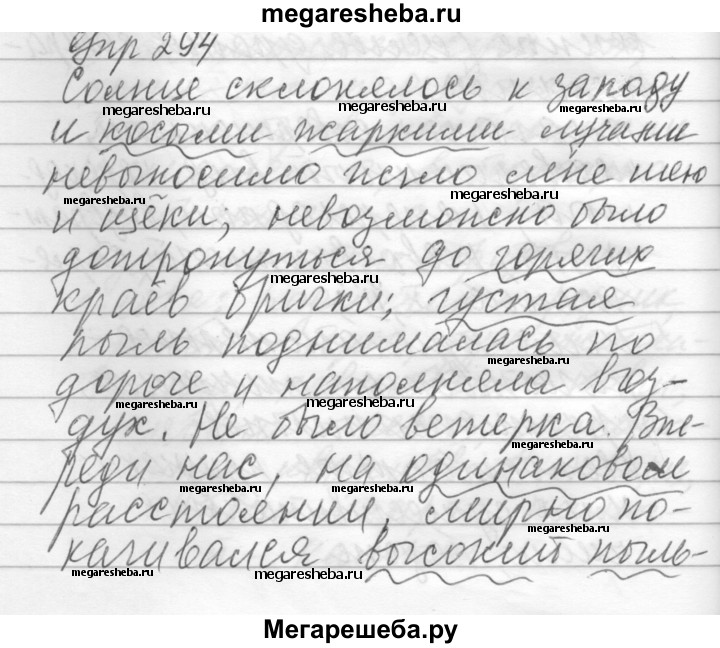 megaresheba.ru
Упр 294
Солнце склонялось к западу
megaresheba.ru megaresheba.ru megaresheba.ru
и косыми жаркими лучами
невыносимо жгло мне шею
megaresheba.ru megaresheba.ru
и щёки; невозможно было
дотронуться до горячих
megaresheba.ru
краёв брички; густая
пыль поднималась по
megaresheba.ru
дороге и наполняла воз-
megaresheba.ru megaresheba.ru
дух. Не было ветерка. Впе-
megaresheba.ru
реди нас, на одинаковом
megaresheba.ru megaresheba.ru
расстоянии, мирно по-
megaresheba.ru
качивался высокий пыль-
megaresheba.ru megaresheba.ru
Мегарешеба.ру